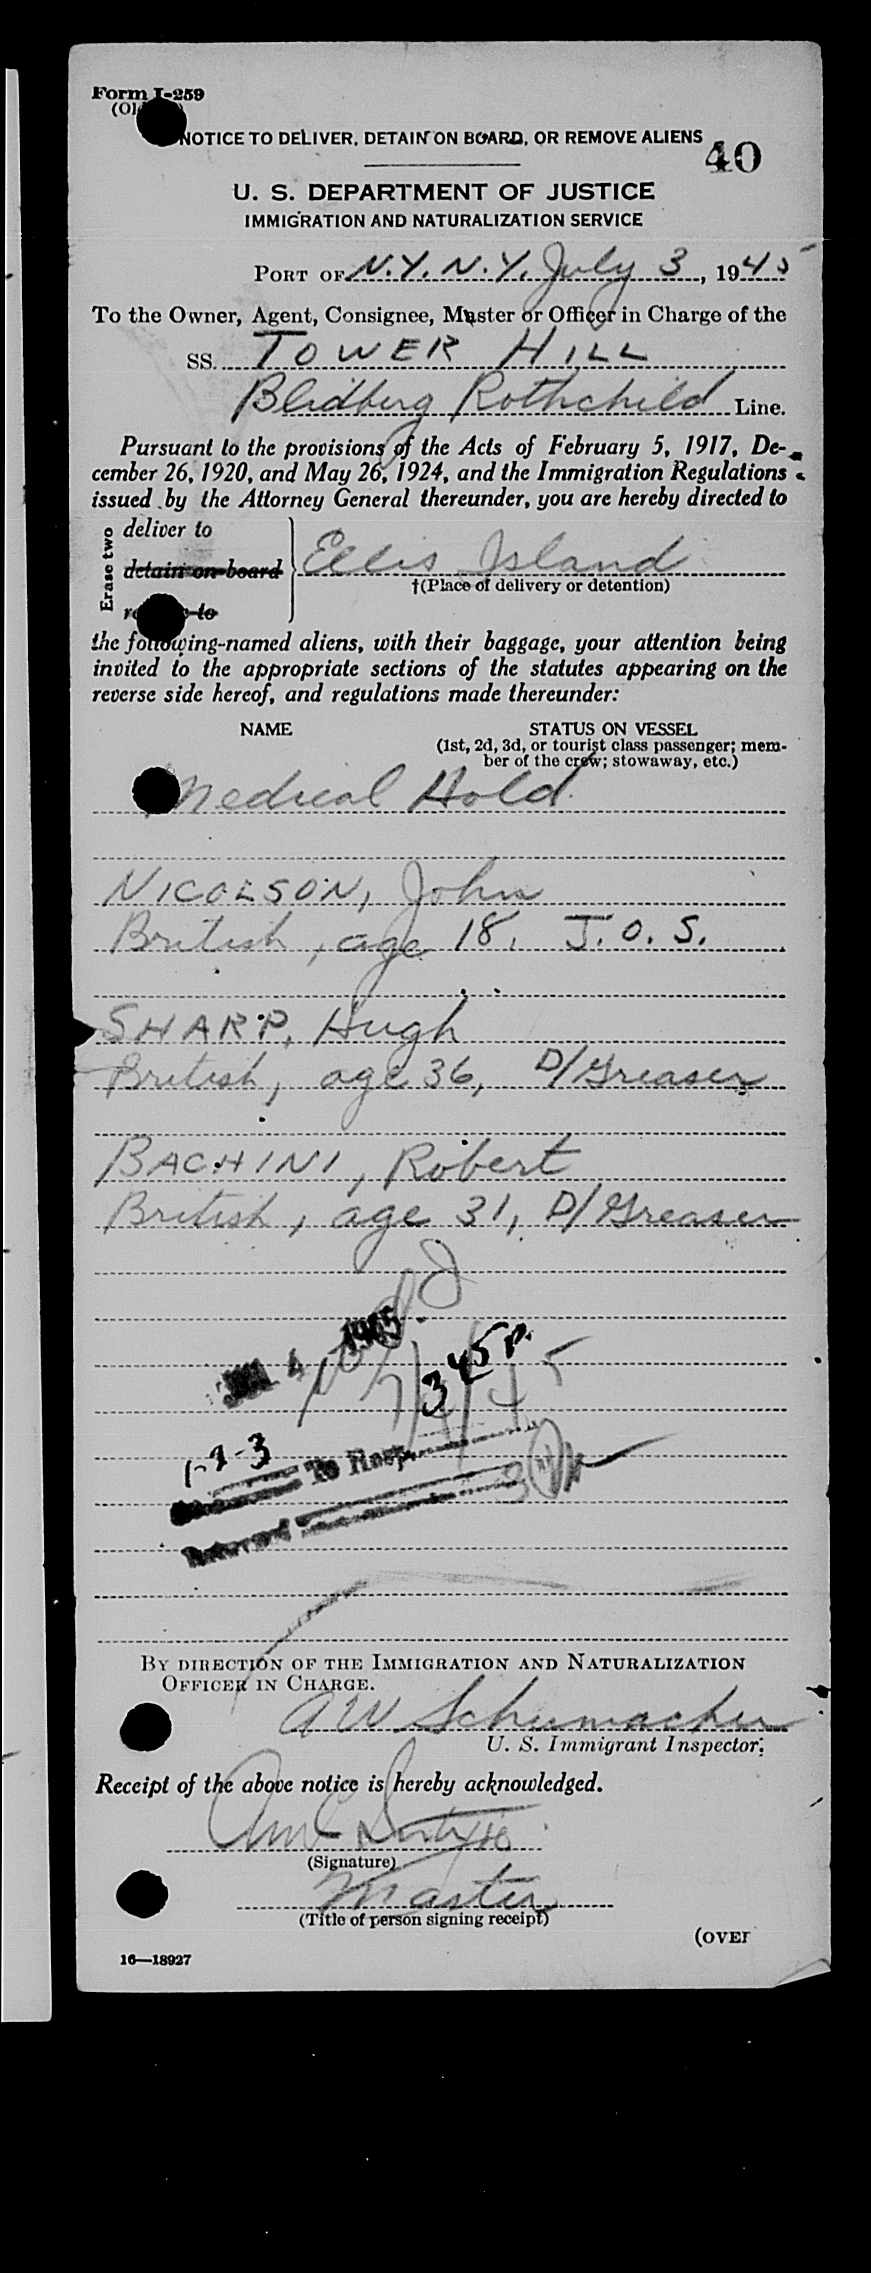 Form I-259
40
NOTICE TO DELIVER, DETAIN ON BOARD, OR REMOVE ALIENS
U. S. DEPARTMENT OF JUSTICE
IMMIGRATION AND NATURALIZATION SERVICE
PORT OF N.Y. N.Y. July 3, 1945
To the Owner, Agent, Consignee, Master or Officer in Charge of the
SS. TOWER HILL
Blidberg Rothchild Line.
Pursuant to the provisions of the Acts of February 5, 1917, De-
cember 26, 1920, and May 26, 1924, and the Immigration Regulations
issued by the Attorney General thereunder, you are hereby directed to
Erase two
deliver to
detain on board
Ellis Island
†(Place of delivery or detention)
to
the following-named aliens, with their baggage, your attention being
invited to the appropriate sections of the statutes appearing on the
reverse side hereof, and regulations made thereunder:
NAME STATUS ON VESSEL
(1st, 2d, 3d, or tourist class passenger; mem-
ber of the crew; stowaway, etc.)
Medical Hold
NICOLSON, John
British, age 18, J.O.S.
SHARP, Hugh
British, age 36, D/Greaser
BACHINI, Robert
British, age 31, D/Greaser
4 1945
345 P.
7/4/45
1-2-3
To Hosp.
Returned
BY DIRECTION OF THE IMMIGRATION AND NATURALIZATION
OFFICER IN CHARGE.
A W Schumacher
U. S. Immigrant Inspector.
Receipt of the above notice is hereby acknowledged.
(Signature)
Master
(Title of person signing receipt)
(OVER
16—18927